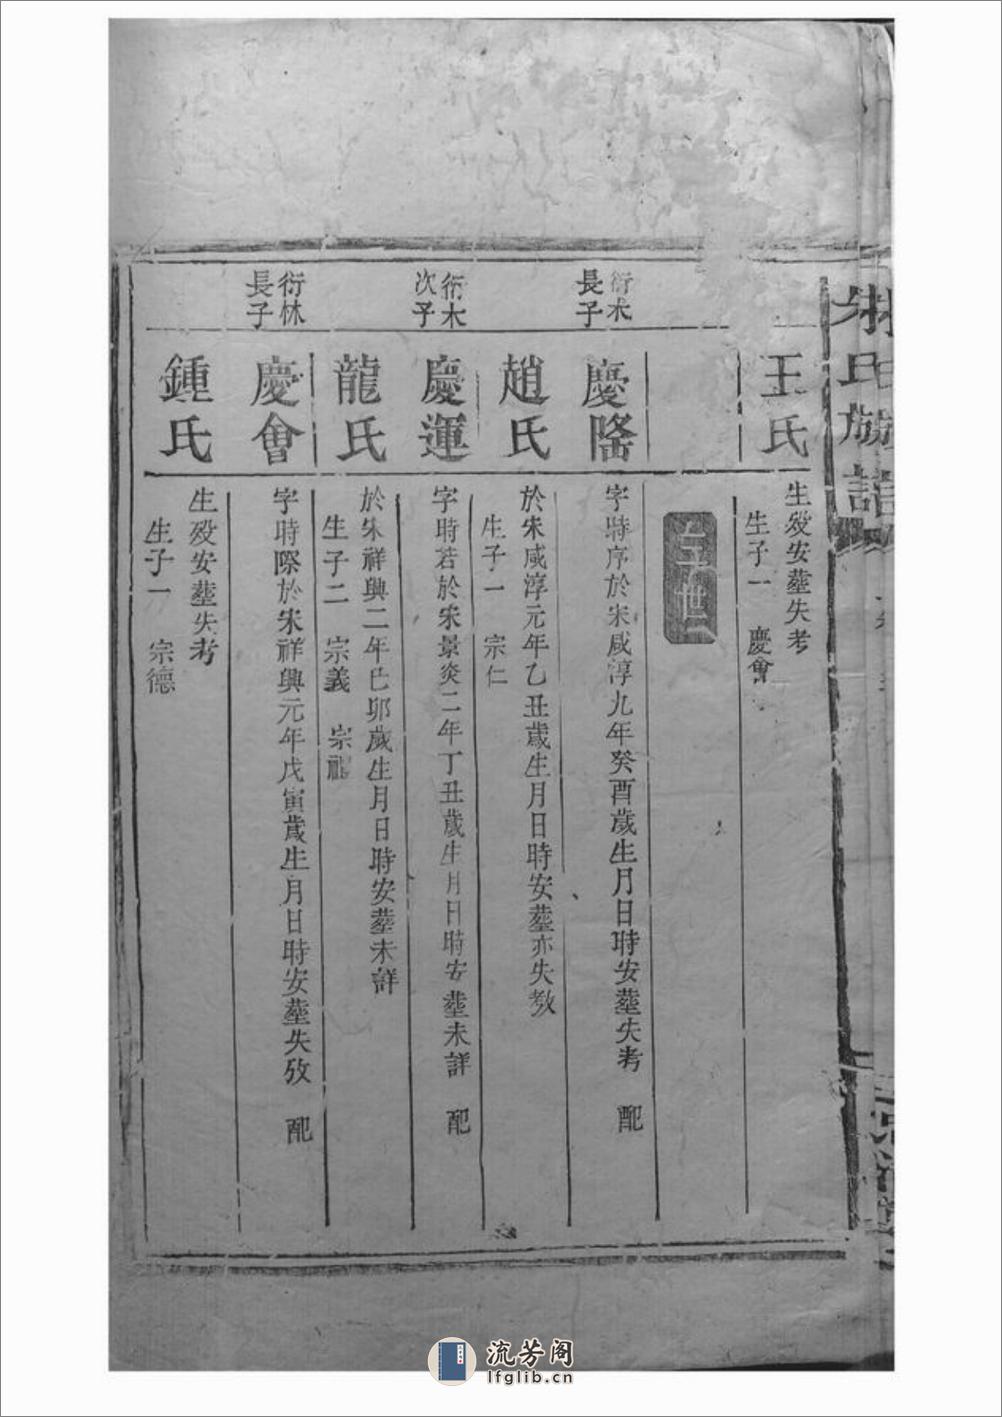 朱氏族譜
王氏
生殁安塟失考
生子一 慶會
三世
衍木長子
慶隆
字時序於宋咸淳九年癸酉歲生月日時安塟失考 配
趙氏
於宋咸淳元年乙丑歲生月日時安塟亦失攷
生子一 宗仁
衍木次子
慶運
字時若於宋景炎二年丁丑歲生月日時安塟未詳 配
龍氏
於宋祥興二年巳卯歲生月日時安塟未詳
生子二 宗義 宗禮
衍林長子
慶會
字時際於宋祥興元年戊寅歲生月日時安塟失攷 配
鍾氏
生殁安塟失考
生子一 宗德
流芳阁
lfglib.cn